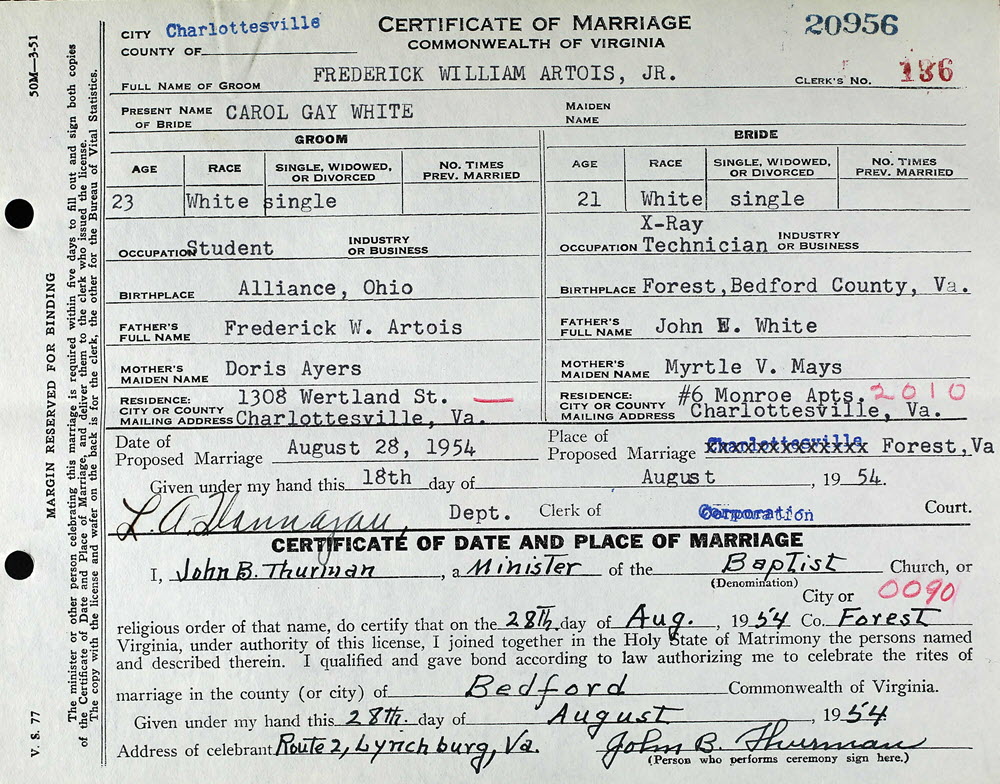 CITY Charlottesville CERTIFICATE OF MARRIAGE 20956
COUNTY OF COMMONWEALTH OF VIRGINIA
FULL NAME OF GROOM FREDERICK WILLIAM ARTOIS, JR. CLERK'S NO. 186
PRESENT NAME OF BRIDE CAROL GAY WHITE MAIDEN NAME
GROOM BRIDE
AGE RACE SINGLE, WIDOWED, OR DIVORCED NO. TIMES PREV. MARRIED AGE RACE SINGLE, WIDOWED, OR DIVORCED NO. TIMES PREV. MARRIED
23 White single 21 White single
OCCUPATION Student INDUSTRY OR BUSINESS OCCUPATION X-Ray Technician INDUSTRY OR BUSINESS
BIRTHPLACE Alliance, Ohio BIRTHPLACE Forest, Bedford County, Va.
FATHER'S FULL NAME Frederick W. Artois FATHER'S FULL NAME John E. White
MOTHER'S MAIDEN NAME Doris Ayers MOTHER'S MAIDEN NAME Myrtle V. Mays
RESIDENCE: 1308 Wertland St. — RESIDENCE: #6 Monroe Apts. 2010
CITY OR COUNTY MAILING ADDRESS Charlottesville, Va. CITY OR COUNTY MAILING ADDRESS Charlottesville, Va.
Date of Proposed Marriage August 28, 1954 Place of Proposed Marriage Charlottesville Forest, Va
Given under my hand this 18th day of August, 1954.
Dept. Clerk of Corporation Court.
CERTIFICATE OF DATE AND PLACE OF MARRIAGE
I, John B. Thurman, a Minister of the Baptist Church, or
(Denomination)
City or 0090
religious order of that name, do certify that on the 28th. day of Aug., 1954 Co. Forest
Virginia, under authority of this license, I joined together in the Holy State of Matrimony the persons named
and described therein. I qualified and gave bond according to law authorizing me to celebrate the rites of
marriage in the county (or city) of Bedford Commonwealth of Virginia.
Given under my hand this 28th. day of August, 1954
Address of celebrant Route 2, Lynchburg, Va. John B. Thurman
(Person who performs ceremony sign here.)
50M—3-51
MARGIN RESERVED FOR BINDING
V. S. 77
The minister or other person celebrating this marriage is required within five days to fill out and sign both copies
of the Certificate of Date and Place of Marriage, and deliver them to the clerk who issued the license.
The copy with the license and wafer on the back is for the clerk, the other for the Bureau of Vital Statistics.